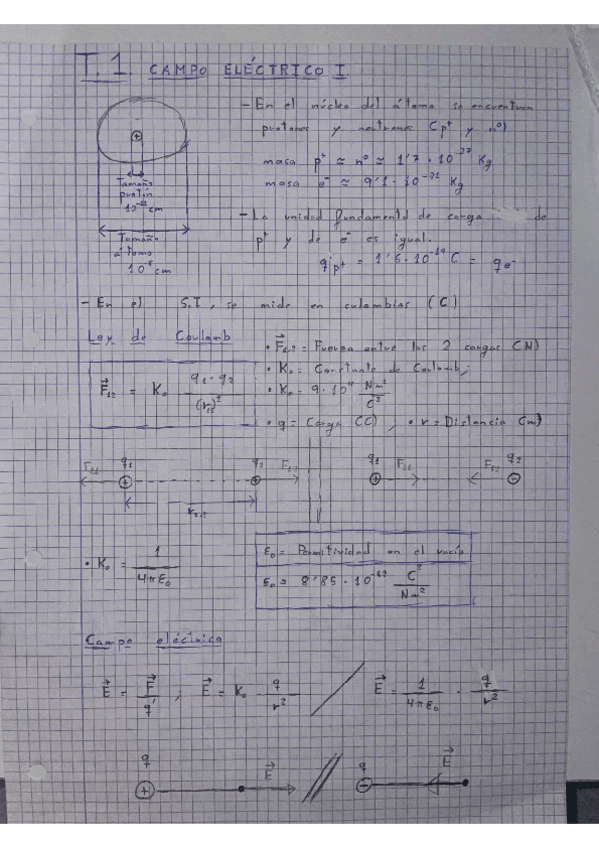 T.1. CAMPO ELÉCTRICO I.
- En el núcleo del átomo se encuentran
protones y neutrones (p⁺ y nº)
masa p⁺ ≈ nº ≈ 1'7 · 10⁻²⁷ Kg
masa e⁻ ≈ 9'1 · 10⁻³¹ Kg
Tamaño
protón
cm
Tamaño
átomo
cm
- La unidad fundamental de carga de
p⁺ y de e⁻ es igual.
q p⁺ = 1'6 · 10⁻¹⁹ C = q e⁻
- En el S.I, se mide en culombios (C)
Ley de Coulomb
F⃗₁₂ = K₀ q₁ · q₂ / (r₁₂)²
• F⃗₁,₂ = Fuerza entre las 2 cargas (N)
• K₀ = Constante de Coulomb;
• K₀ = 9 · 10⁹ Nm²/C²
• q = Carga (C) ; • r = Distancia (m)
F₂₁ q₁ q₂ F₁₂ q₁ F₂₁ F₁₂ q₂
+ + + -
r₁,₂
• K₀ = 1 / 4πε₀
ε₀ = Permitividad en el vacío
ε₀ = 8'85 · 10⁻¹² C²/Nm²
Campo eléctrico
E⃗ = F⃗/q' ; E⃗ = K₀ q/r² / E⃗ = 1/4πε₀ · q/r²
q E⃗ // q E⃗
+ -